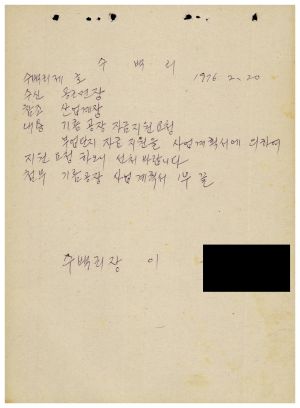 수백리
수백리제 호 1976. 2. 20
수신 용고면장
참고 산업계장
내용 기름 공장 자금지원 요청
부업단지 자금 지원을 사업계획서에 의하여
지원 요청 하오니 선처 바랍니다
첨부 기름공장 사업계획서 1부 끝
수백리장 이